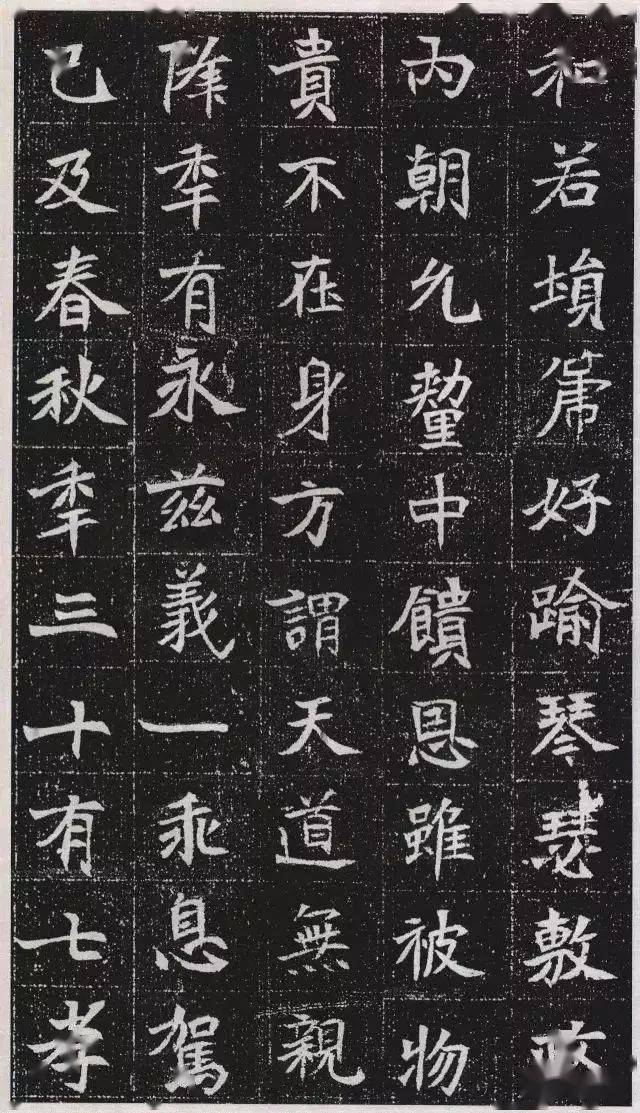 和若塤篪好踰琴瑟敷政
内朝允釐中饋恩雖被物
貴不在身方謂天道無親
降秊有永兹義一乖息駕
已及春秋秊三十有七孝